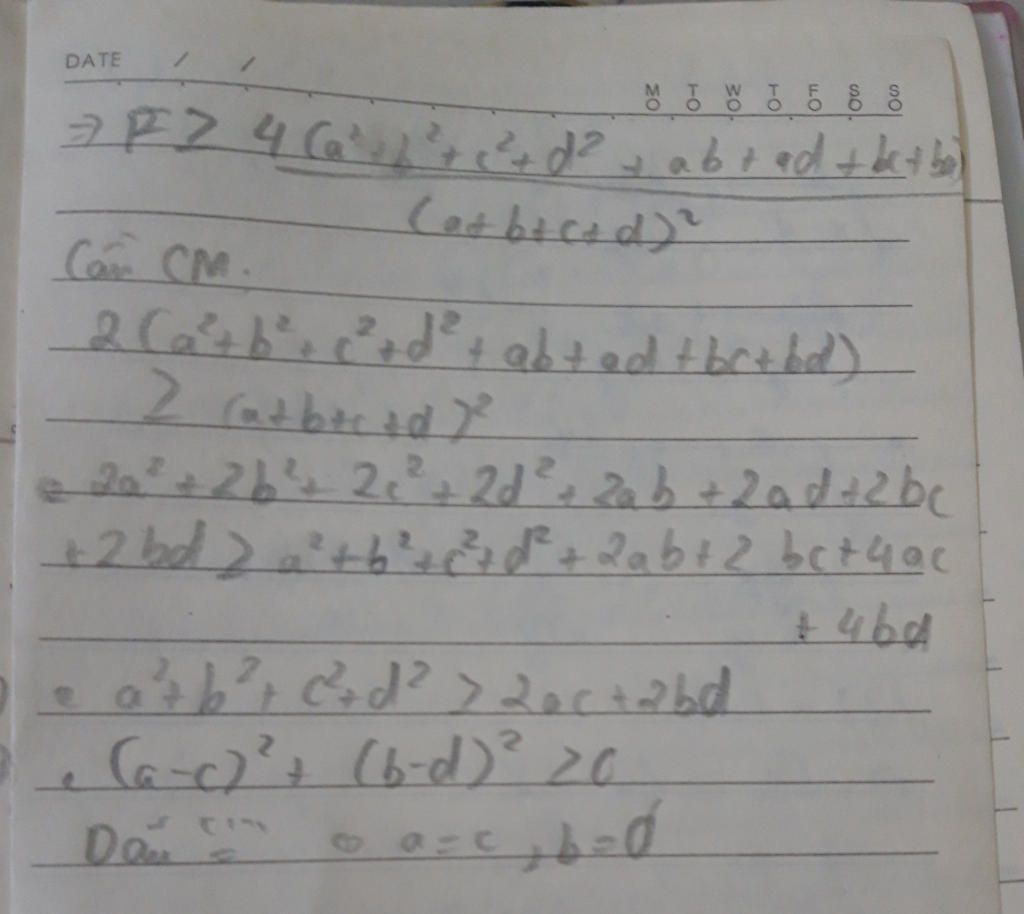 DATE / /
M T W T F S S
⇒ F ≥ 4(a² + b² + c² + d² + ab + ad + bc + bd)
(a+b+c+d)²
Cần CM.
2(a²+b²+c²+d²+ab+ad+bc+bd)
≥ (a+b+c+d)²
2a²+2b²+2c²+2d²+2ab+2ad+2bc
+2bd ≥ a²+b²+c²+d²+2ab+2bc+4ac
+4bd
a²+b²+c²+d² ≥ 2ac+2bd
(a-c)² + (b-d)² ≥ 0
Dấu "=" ⇔ a=c, b=d